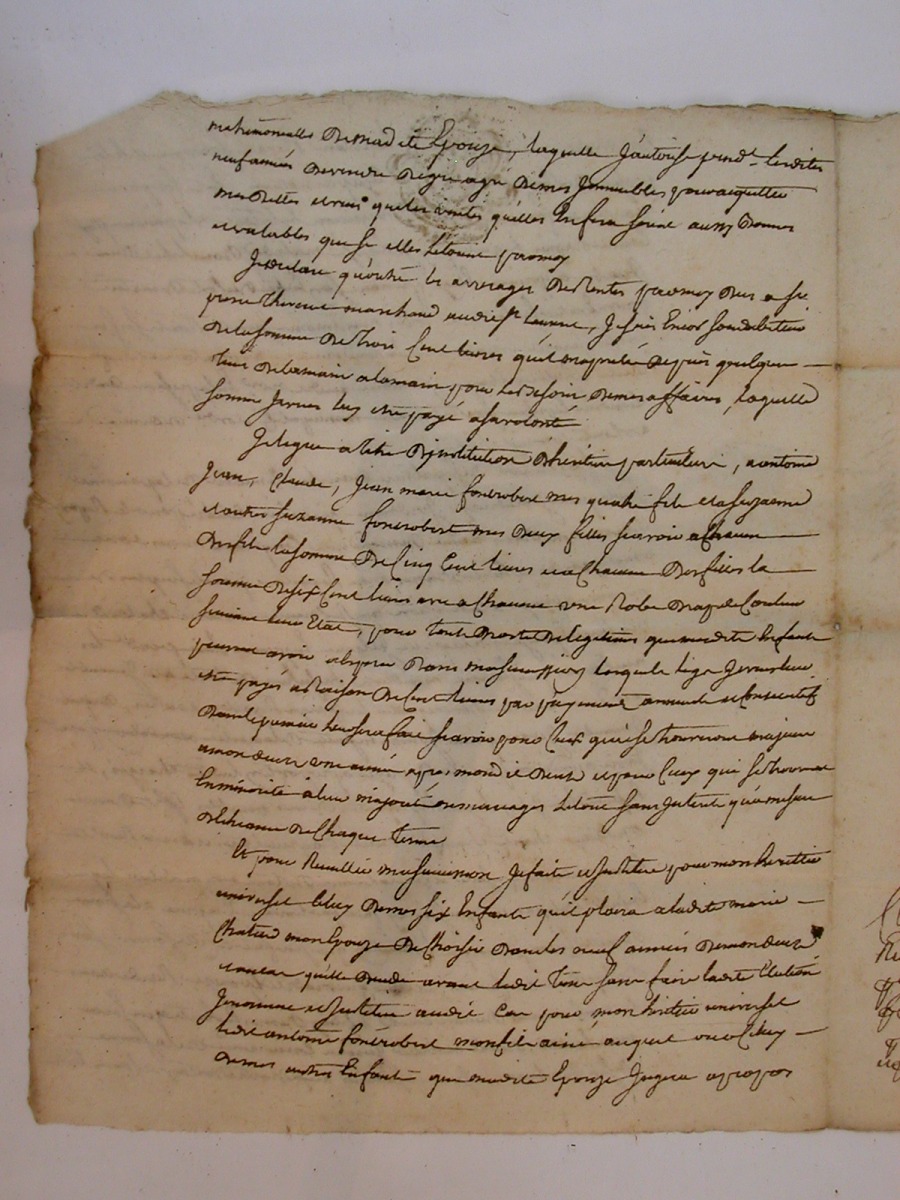 matrimonialles de madite Epouze, laquelle J'autorise pend.t lesdites
neuf années de vendre de gré a gré de mes Jmmeubles pour acquitter
mes dettes et veux que les ventes qu'elles En fera soient aussy bonnes
et valables que sy elles Etoient par moy
Je declare qu'outre les arrerages des rentes par moy dus a Sr
pierre marchand audit St je suis Encor son debiteur
de la somme de trois Cent livres qu'il m'a pretée depuis quelque
tems de la main a la main pour les besoin de mes affaires, laquelle
somme Je veux luy etre payé a sa volonté
Je legue a titre d'institution d'heritier particuliere, a antoine
Jean, Claude, Jean marie fonrobert mes quatre fils et a Suzanne
et autre Suzanne fonrobert mes deux filles scavoir a Chacun
des fils la somme de Cinq Cent livres et a Chacune des filles la
somme de six Cent livres avec a Chacune une Robe drap de Couleur
suivant leur Etat, pour tout droits de legitime que mesdits Enfants
pourront avoir a Esperer dans ma succession lesquels legs Je veux leur
etre payés a raison de Cent livres par payement annuels et Consecutifs
dont le premier leur sera fait scavoir pour Ceux qui se trouveront majeur
a mon deces une année apres mondit deces et pour Ceux qui se trouveront
En minorité à leur majorité ou mariages le tout sans Interet qu'a mesure
d'Echeance de Chaque terme
Et pour Recueillir ma succession Je fait et Jnstitue pour mon heritier
universel Celuy de mes six Enfants qu'il plaira a ladite marie
mon Epouze de Choisir dans les neuf années de mon deces
et au cas qu'elle decede avant ledit tems sans faire ladite Election
Je nomme et Jnstitue audit Cas pour mon heritier universel
ledit antoine fonrobert mon fils ainé auquel ou a Celuy
de mes autres Enfants que madite Epouze Jugera apropos